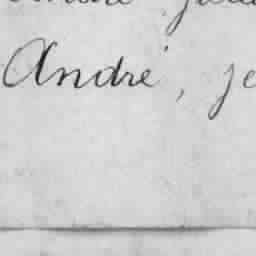 André, je